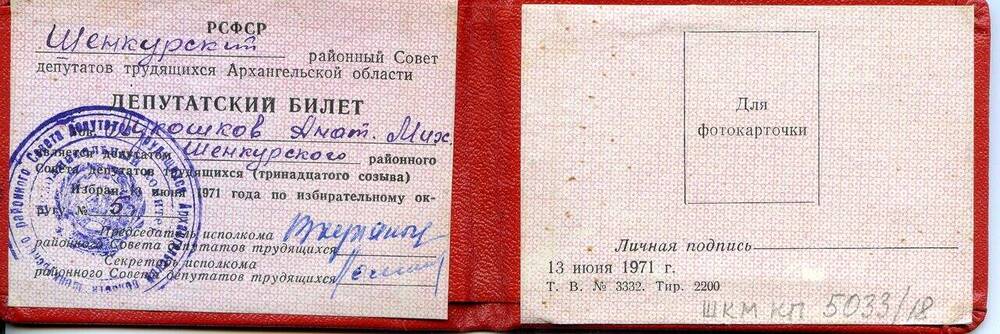 РСФСР
Шенкурский районный Совет
депутатов трудящихся Архангельской области
ДЕПУТАТСКИЙ БИЛЕТ
Тов. Лукошков Анат. Мих.
является депутатом Шенкурского районного
Совета депутатов трудящихся (тринадцатого созыва)
Избран 13 июня 1971 года по избирательному ок-
ругу № 5
Председатель исполкома
районного Совета депутатов трудящихся
Секретарь исполкома
районного Совета депутатов трудящихся
Для
фотокарточки
Личная подпись
13 июня 1971 г.
Т. В. № 3332. Тир. 2200
ШКМ КП 5033/18